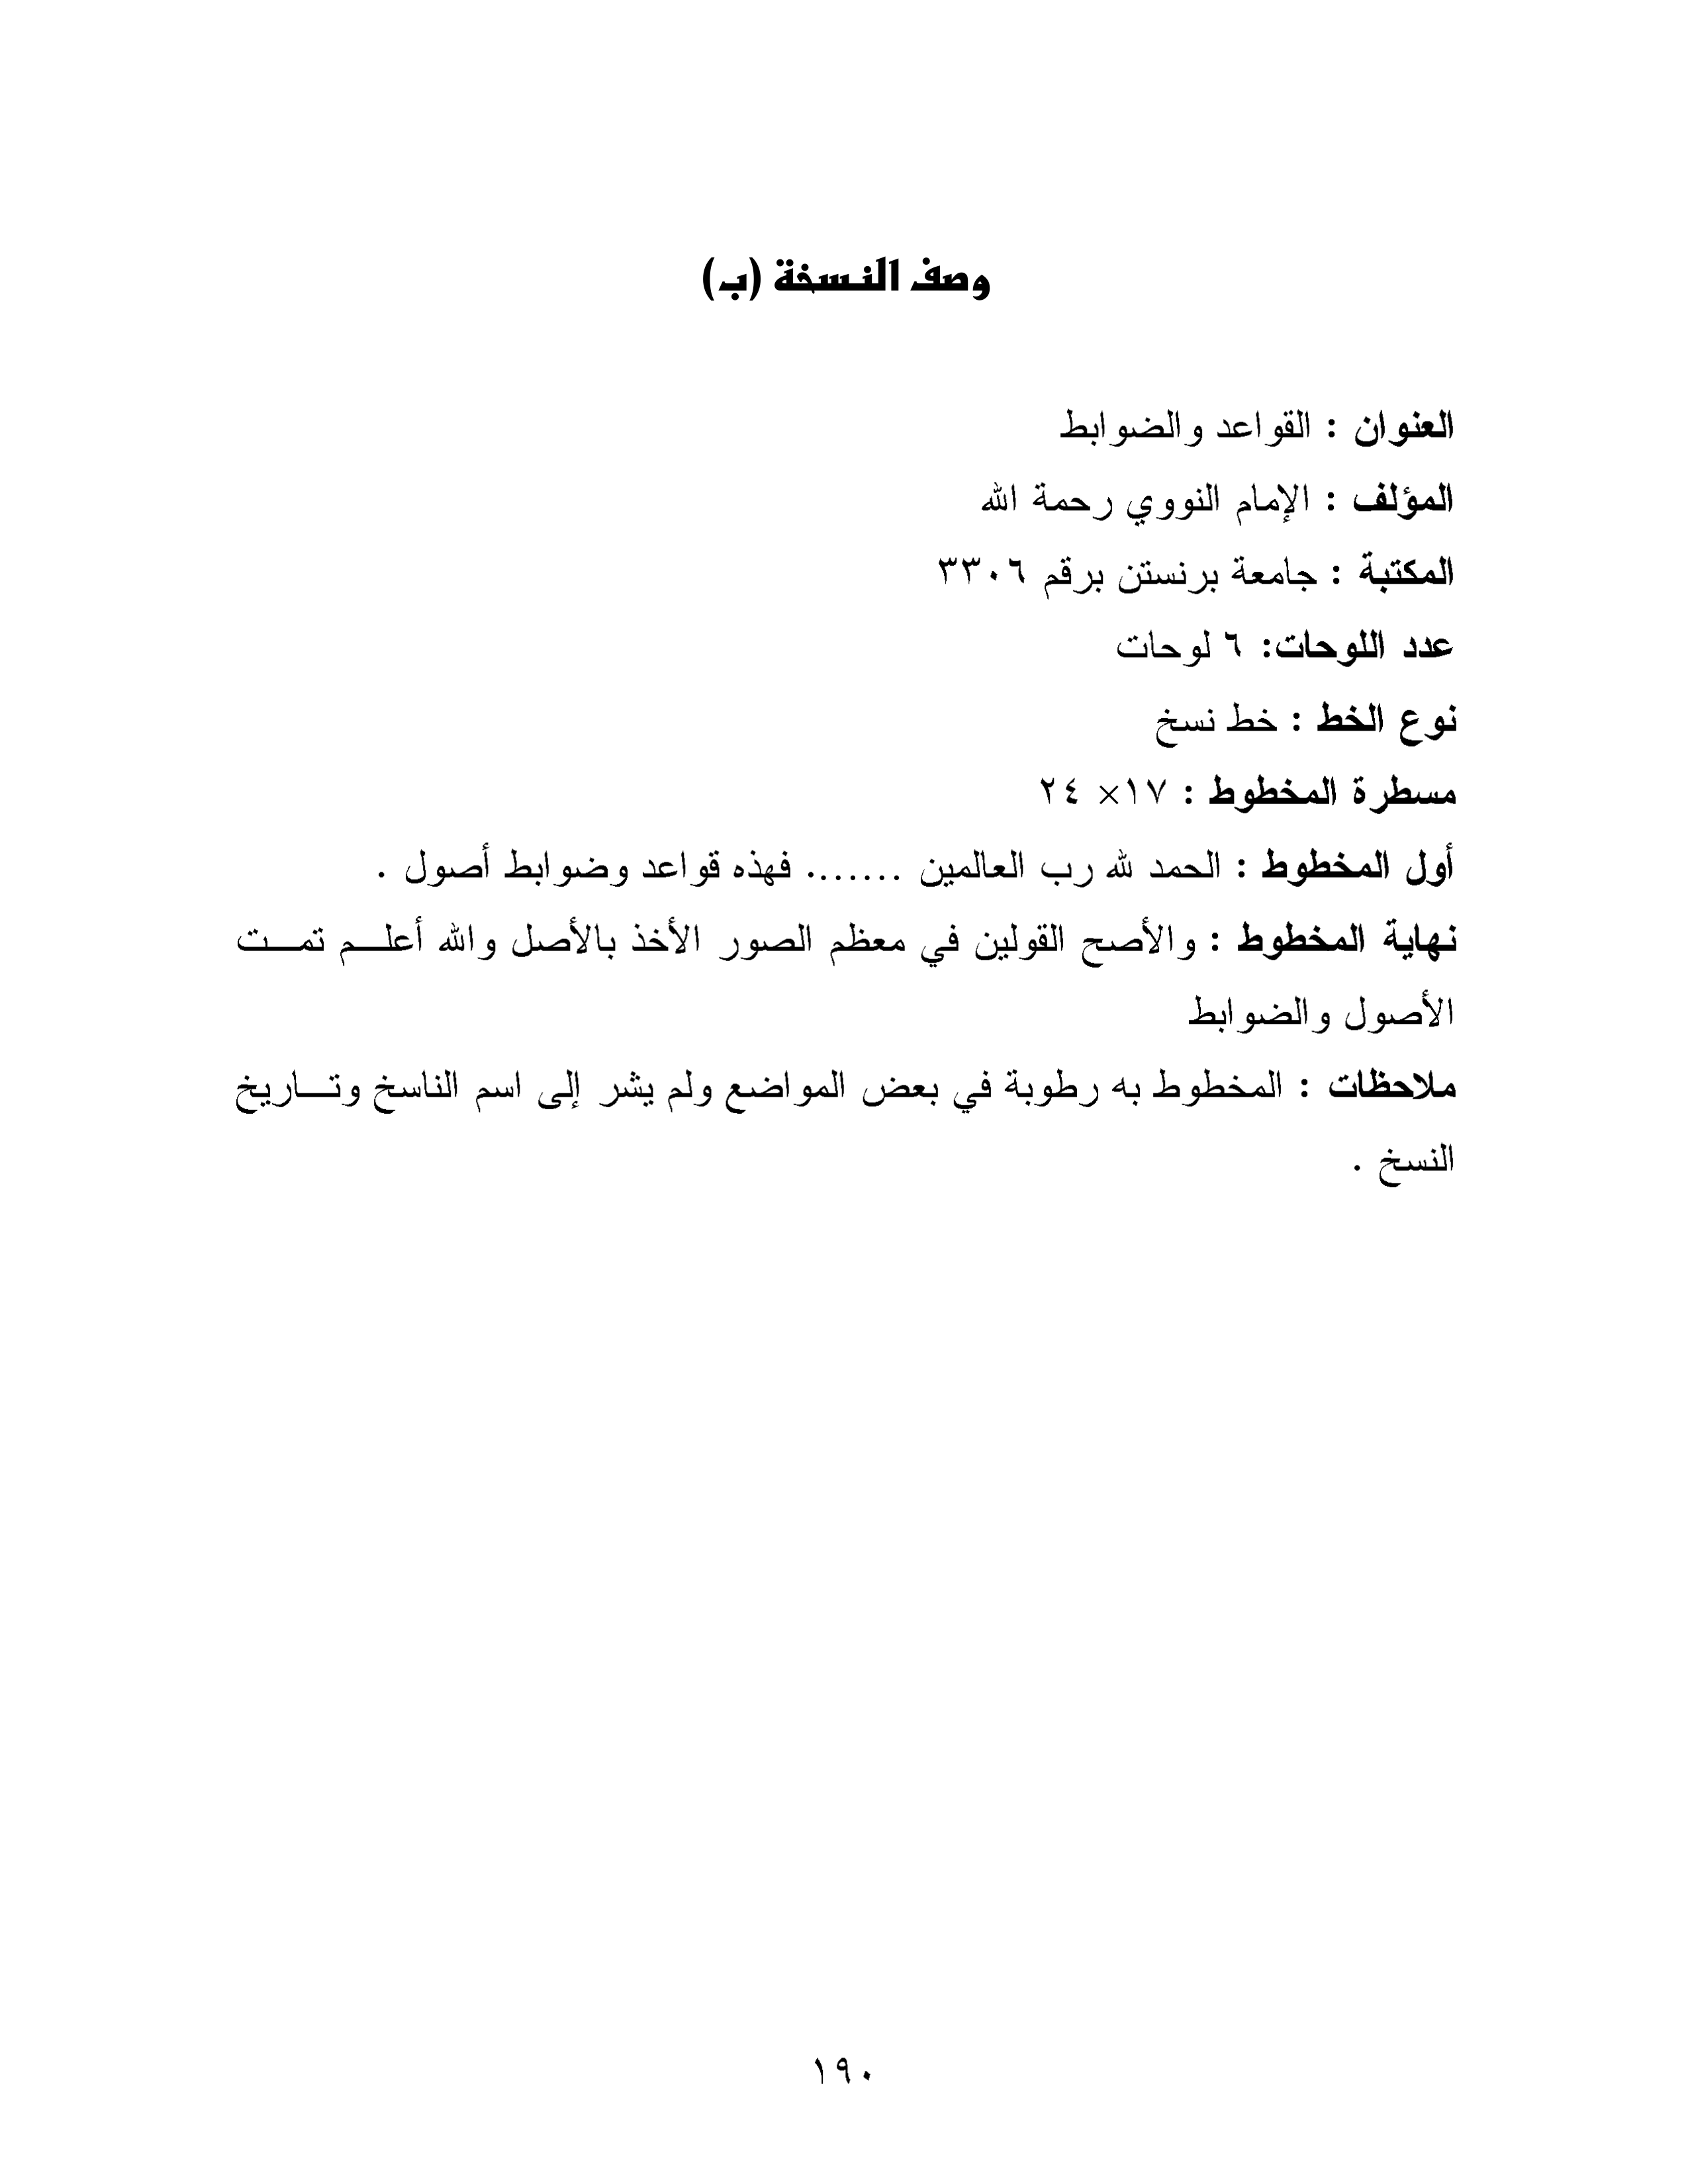 وصف النسخة (ب)
العنوان : القواعد والضوابط
المؤلف : الإمام النووي رحمة الله
المكتبة : جامعة برنستن برقم ٣٣٠٦
عدد اللوحات: ٦ لوحات
نوع الخط : خط نسخ
مسطرة المخطوط : ١٧× ٢٤
أول المخطوط : الحمد لله رب العالمين ....... فهذه قواعد وضوابط أصول .
نهاية المخطوط : والأصح القولين في معظم الصور الأخذ بالأصل والله أعلـــم تمـــت
الأصول والضوابط
ملاحظات : المخطوط به رطوبة في بعض المواضع ولم يشر إلى اسم الناسخ وتـــاريخ
النسخ .
١٩٠